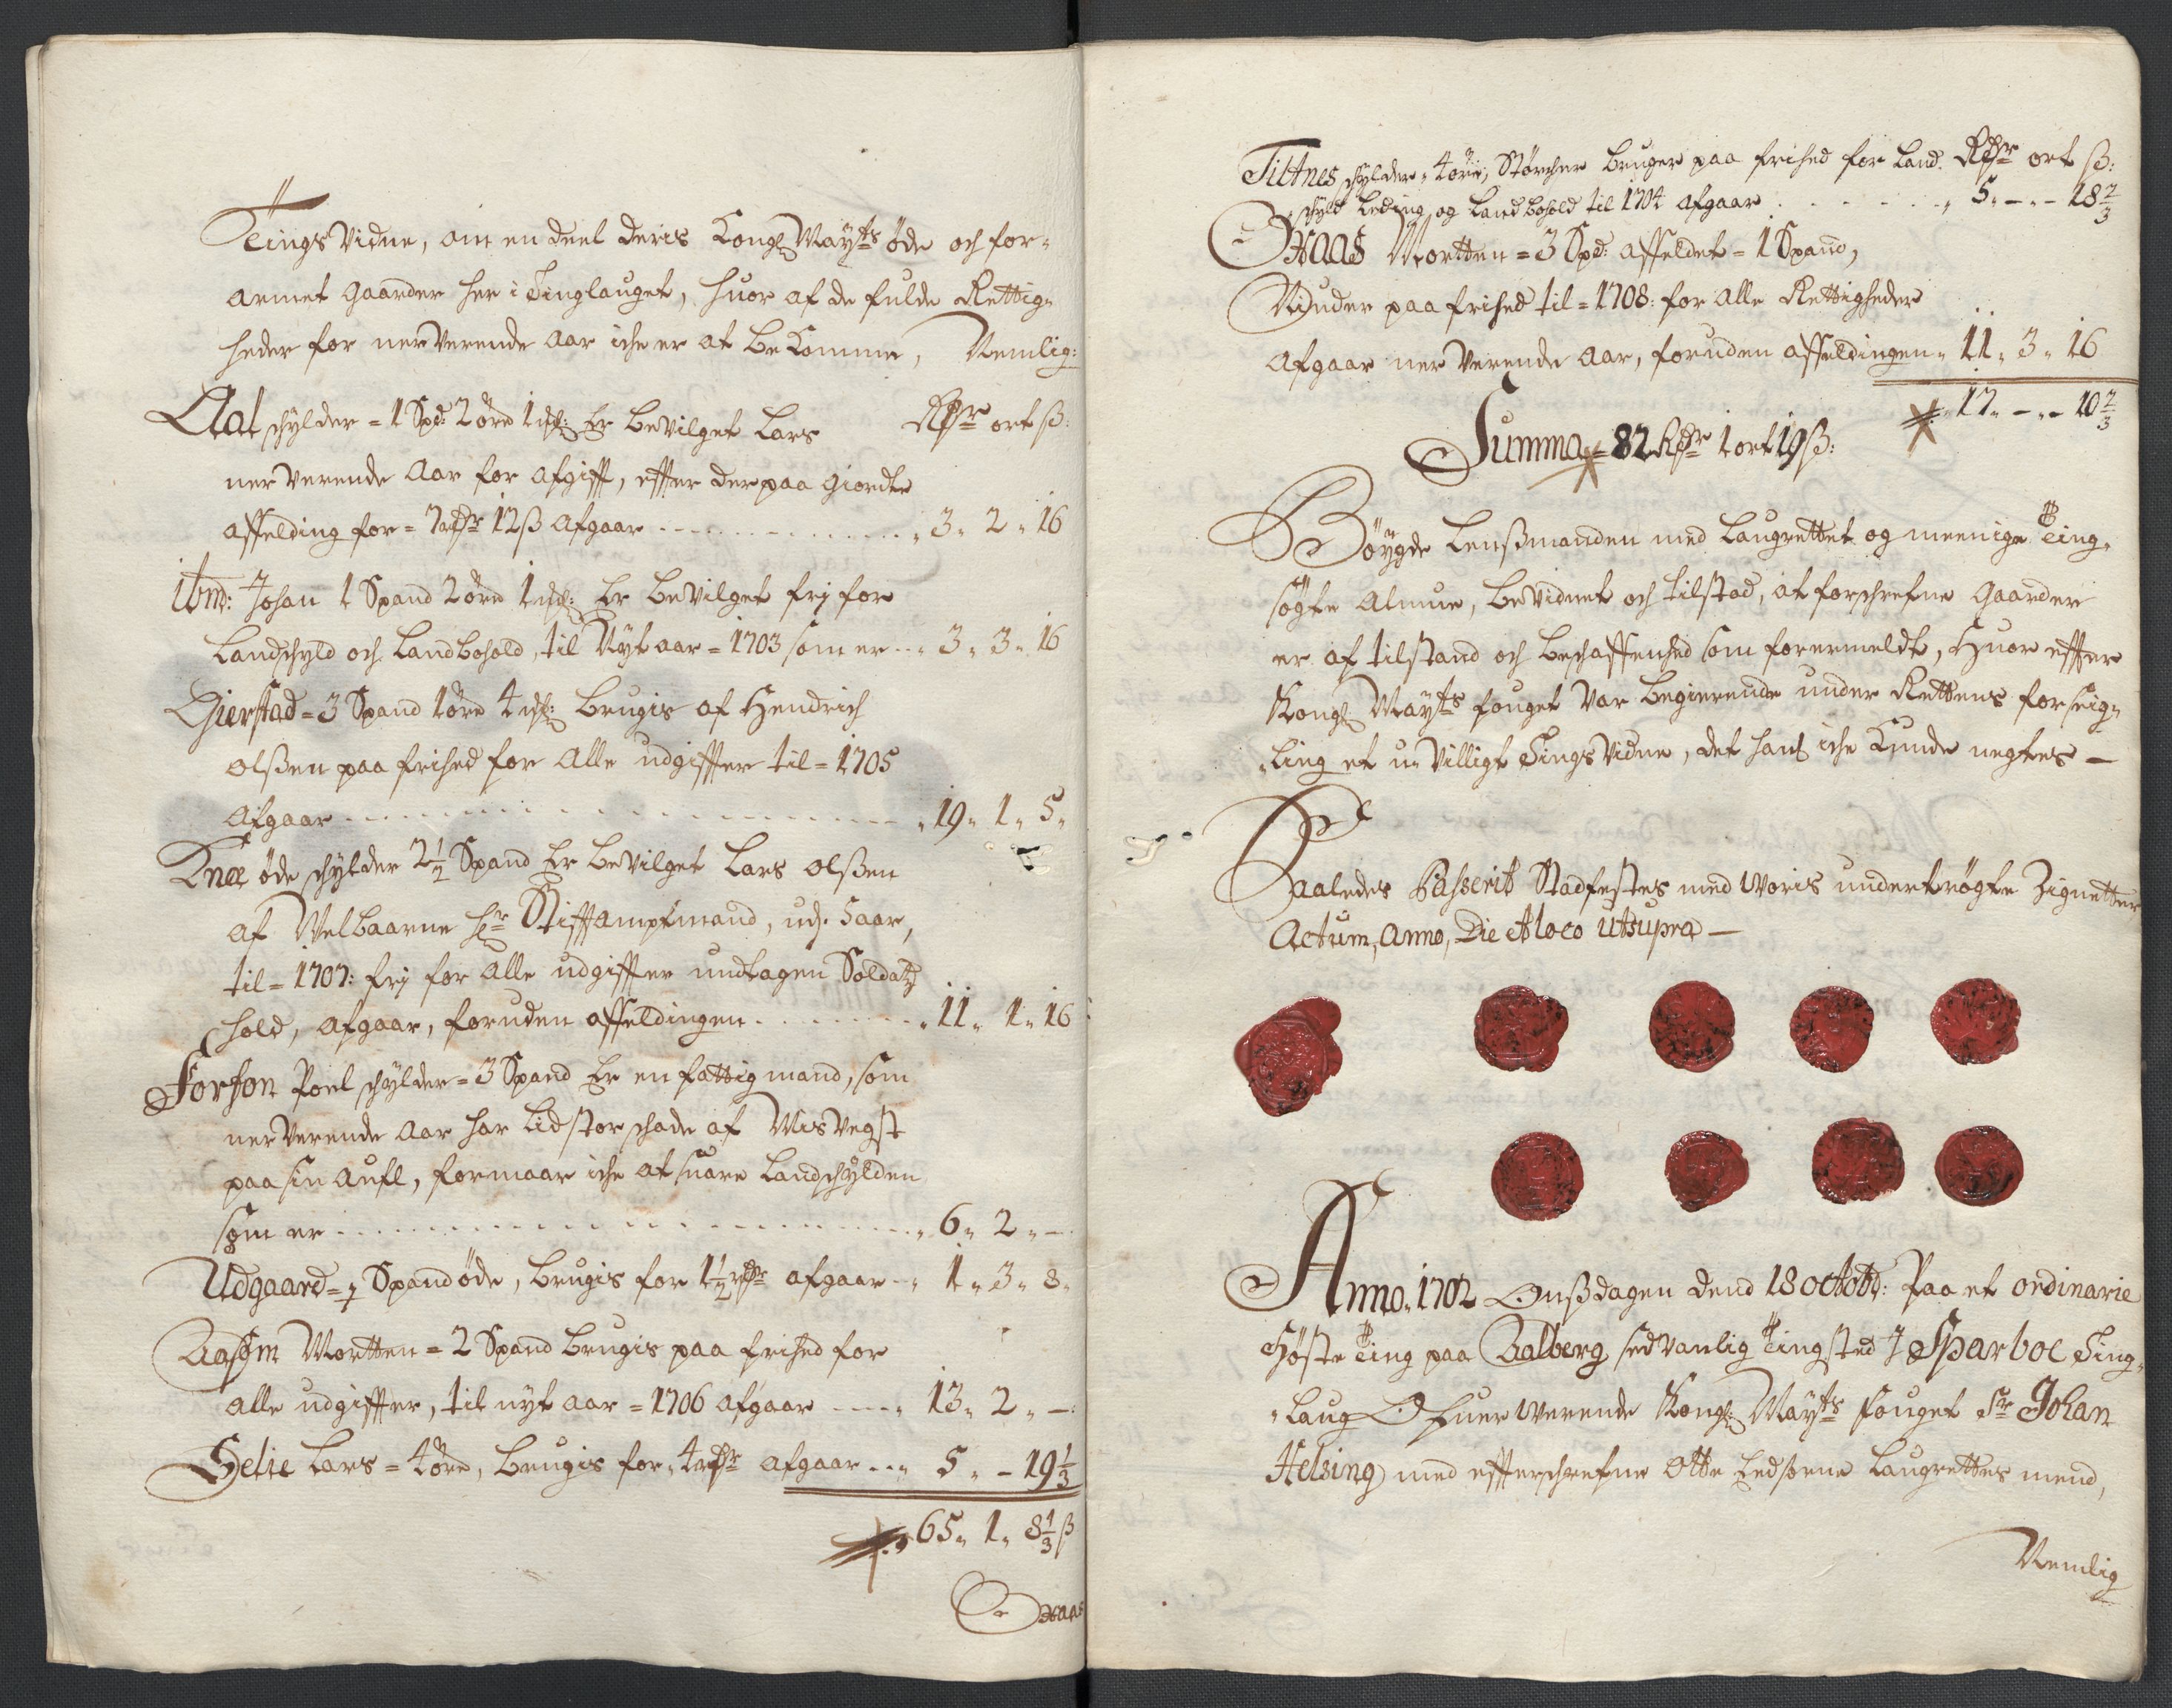 Tings Vidne, om en deel deris Kongl Mayts øde och for-
armet gaarder her i Tinglauget, huor af de fulde Rettig-
heder for nerVerende aar iche er at beKomme, Nemlig:
Aat schylder = 1 Spd: 2 øre 1 mkl: Er beVilget Lars Rdr ort ß:
nerVerende aar for afgifft, effter der paa giordte
affelding for = 7 rdr 12 ß afgaar - - - - „ 3 „ 2 „ 16
ibmd: Johan 1 Spand 2 øre 1 mkl: Er beVilget frj for
Landschyld och Landbohold, til Nyt aar = 1703 som er - - „ 3 „ 3 „ 16
Gierstad = 3 Spand 1 øre 4 mkl: brugis af Hendrich
olßen paa frihed for alle udgiffter til = 1705
afgaar - - - - „ 19 „ 1 „ 5 „
Knæ øde schylder 2 1/2 Spand Er beVilget Lars olßen
af Velbaarne hr Stifftamptmand, udj 5 aar,
til = 1707: frj for alle udgiffter undtagen Soldatz
hold, afgaar, foruden affeldingen - - - „ 11 „ 1 „ 16
Forson Poel schylder = 3 Spand Er en fattig mand, som
nerVerende aar har lid stor schade af MisVegst
paa sin aufl, formaar iche at suare Landschylden
som er - - - - „ 6 „ 2 „ -
Udgaard = 1/2 Spand øde, brugis for 1 1/2 rdr afgaar - - „ 1 „ 3 „ 8 „
Aasum Mortten = 2 Spand brugis paa frihed for
alle udgiffter, til nyt aar = 1706 afgaar - - - „ 13 „ 2 „ -
Selie Lars = 4 øre, brugis for „ 4 rdr afgaar - - „ 5 „ - 19 1/3
65 „ 1 „ 8 1/3 ß
Haas
Tiltnes schylder „ 4 øre, Størcher bruger paa frihed for Land- Rdr ort ß:
schyld Leding og Landbohold til 1704 afgaar - - - „ 5 „ - „ - 18 2/3
Haas Mortten = 3 Spd: affeldet = 1 Spand,
Niuder paa frihed til = 1708: for alle Rettigheder
afgaar nerVerende aar, foruden affeldingen „ 11 „ 3 „ 16
„ 17 „ - „ - 10 2/3
Summa = 82 Rdr 1 ort 19 ß:
Böygde Lensßmanden med Laugrettet og meenige Ting-
søgte Almue, beVidnet och tilstod, at forschrefne gaarder
er af tilstand och beschaffenhed som formeldt, Huor effter
Kongl Mayts fouget Var begierende under Rettens forseig-
ling et u-Villigt TingsVidne, det hans iche Kunde negtes -
Saaledes Passerit Stadfestes med Woris undertrøgte Zignetter
Actum, Anno, Die et loco ut supra -
Anno 1702 Onßdagen dend 18 octobr: Paa et ordinarie
Høste Ting paa Aalberg sedvanlig Tingsted J Sparboe Ting-
laug Ofuerwerende Kongl: Mayts fouget Sr Johan
Helsing med effterschrefne otte Eedsorne Laugrettes mend,
Nemlig